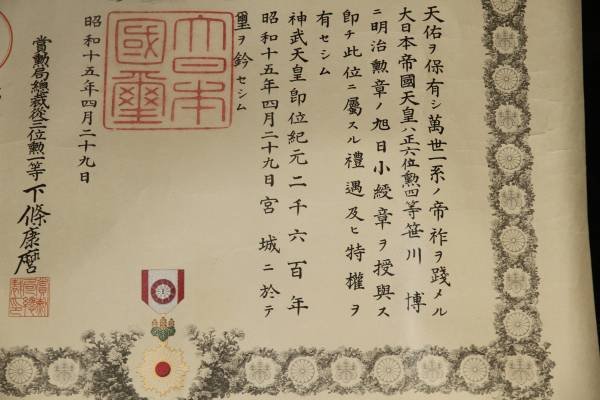 天佑ヲ保有シ萬世一系ノ帝祚ヲ踐メル
大日本帝國天皇ハ正六位勲四等笹川博
ニ明治勲章ノ旭日小綬章ヲ授與ス
即チ此位ニ屬スル禮遇及ヒ特權ヲ
有セシム
神武天皇即位紀元二千六百年
昭和十五年四月二十九日宮城ニ於テ
璽ヲ鈐セシム
大日本國璽
昭和十五年四月二十九日
賞勲局總裁從三位勲一等下條康麿